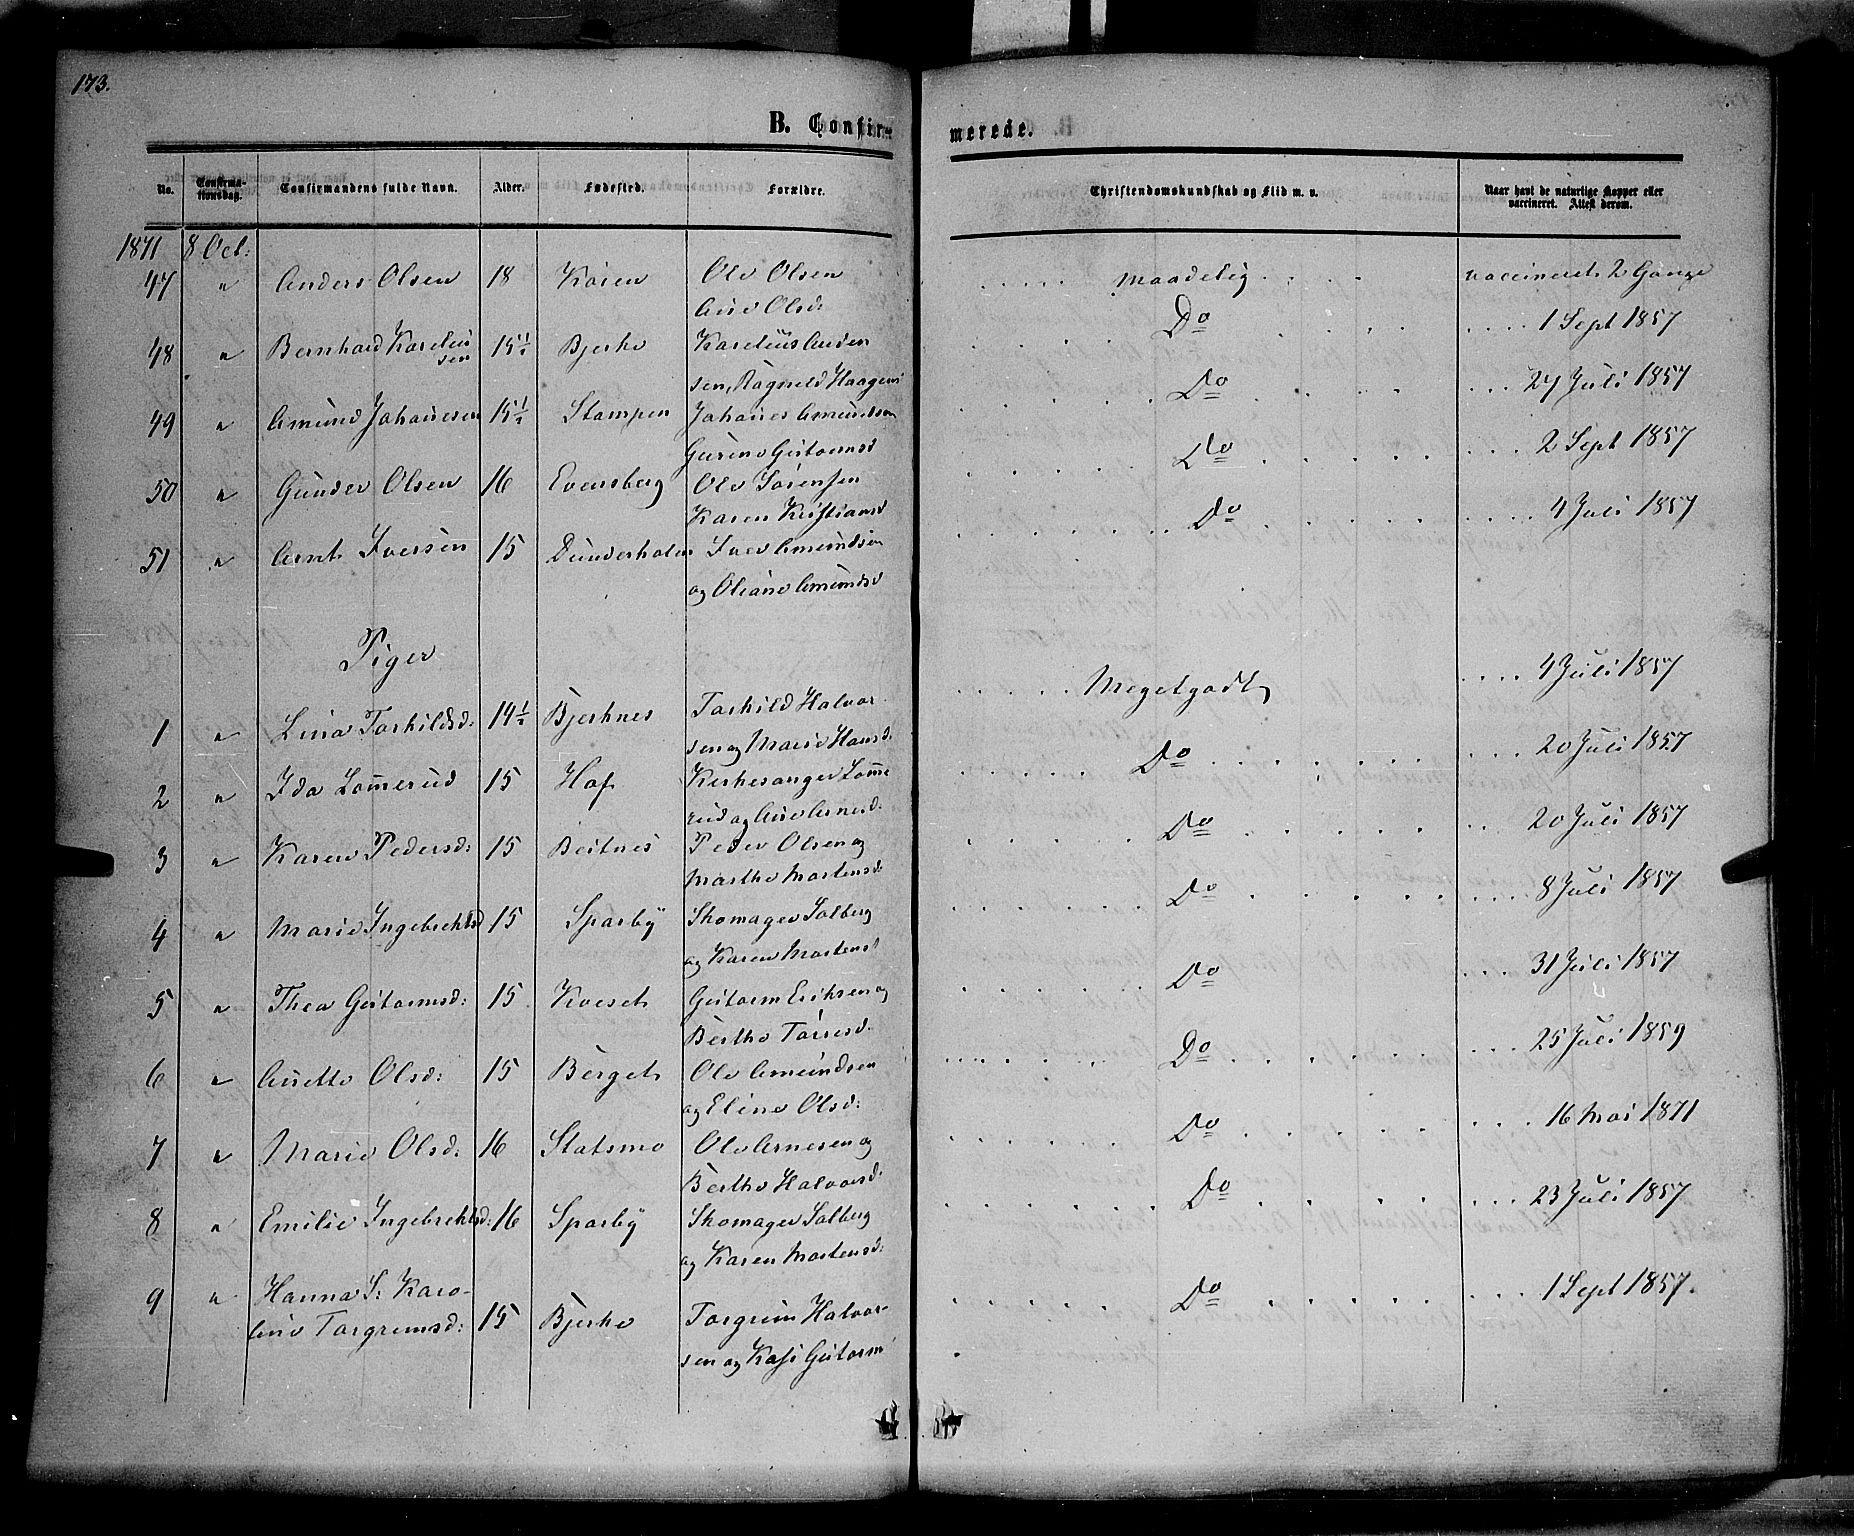 173.
B. Confir-
merede.
No. Confirma-tionsdag. Confirmandens fulde Navn. Alder. Fødested. Forældre. Christendomskundskab og Flid m. v. Naar havt de naturlige Kopper eller vaccineret. Attest derom.
1871 8 Oct:
47 " Anders Olsen 18 Køien Ole Olsen maadelig vaccineret 2 Gange
Ane Olsd:
48 " Bernhard Karelius 15½ Bjerke Karelius Anden Do 1 Sept 1857
sen sen, Ragnild Haagens
49 " Amund Johannesen 15½ Stampen Johanes Amundsen Do 27 Juli 1857
Gurine Gutormsd
50 " Gunder Olsen 16 Evensberg Ole Sørensen Do 2 Sept 1857
Karen Kristiansd
51 " Arnt Iversen 15 Dunderholen Iver Amundsen Do 4 Juli 1857
og Oliane Amundsd
Piger
1 " Lina Torkildsd: 14½ Bjerknes Torkild Halvor Megetgodt 4 Juli 1857
sen og Marie Hansd:
2 " Ida Lomerud 15 Hof Kirkesanger Lome Do 20 Juli 1857
rud og Ane Arnesd:
3 " Karen Pedersd: 15 Beitnes Peder Olsen og Do 20 Juli 1857
Marthe Mortensd:
4 " Marie Ingebrektsd 15 Sparby Skomager Solberg Do 8 Juli 1857
og Karen Mortensd
5 " Thea Gutormsd: 15 Kveset Gutorm Eriksen og Do 31 Juli 1857
Berthe Torresd.
6 " Anette Olsd: 15 Berget Ole Amundsen Do 25 Juli 1859
og Eline Olsd:
7 " Marie Olsd: 16 Statsmo Ole Arnesen og Do 16 Mai 1871
Berthe Halvorsd:
8 " Emilie Ingebrektsd: 16 Sparby Skomager Solberg Do 23 Juli 1857
og Karen Mortensd:
9 " Hanna S: Karo-
line Torgrimsd: 15 Bjerke Torgrim Halvor- Do 1 Sept 1857.
sen og Kasi Gutorm